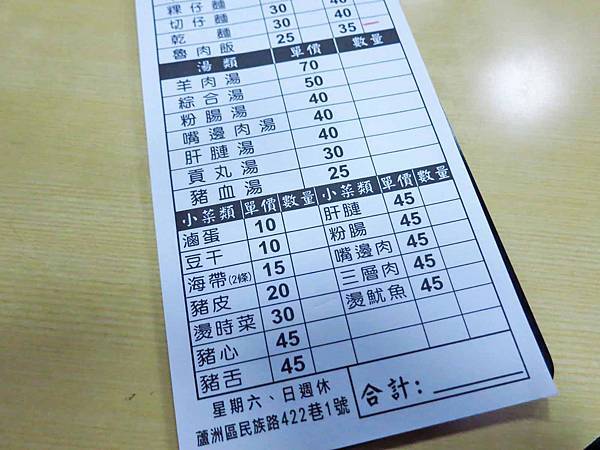 粿仔麵 30 40
切仔麵 30 40
乾麵 25 35
魯肉飯
湯類 單價 數量
羊肉湯 70
綜合湯 50
粉腸湯 40
嘴邊肉湯 40
肝腱湯 40
貢丸湯 30
豬血湯 25
小菜類 單價 數量 小菜類 單價 數量
滷蛋 10 肝腱 45
豆干 10 粉腸 45
海帶(2條) 15 嘴邊肉 45
豬皮 20 三層肉 45
燙時菜 30 燙魷魚 45
豬心 45
豬舌 45
星期六、日週休
蘆洲區民族路422巷1號
合計: